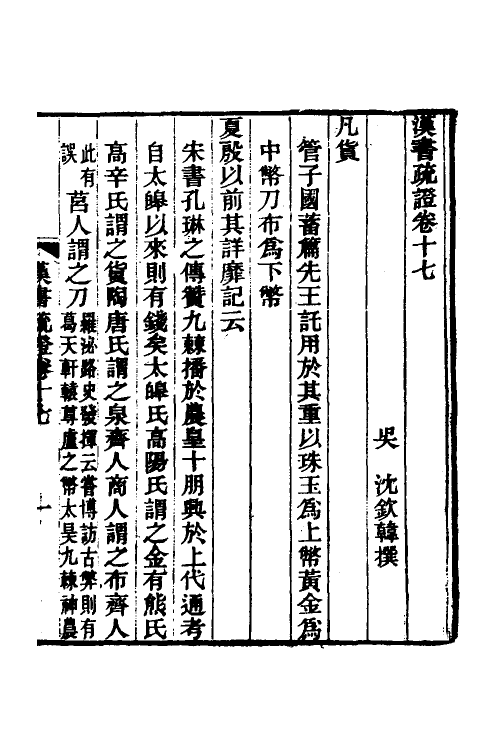 漢書疏證卷十七
吳　沈欽韓撰
凡貨
管子國蓄篇先王託用於其重以珠玉為上幣黃金為
中幣刀布為下幣
夏殷以前其詳靡記云
宋書孔琳之傳贊九棘播於農皇十朋興於上代通考
自太皞以來則有錢矣太皞氏高陽氏謂之金有熊氏
高辛氏謂之貨陶唐氏謂之泉齊人商人謂之布齊人
此有
誤
莒人謂之刀
羅泌路史發揮云嘗博訪古幣則有
葛天軒轅尊盧之幣太昊九棘神農
漢書疏證卷十七
一